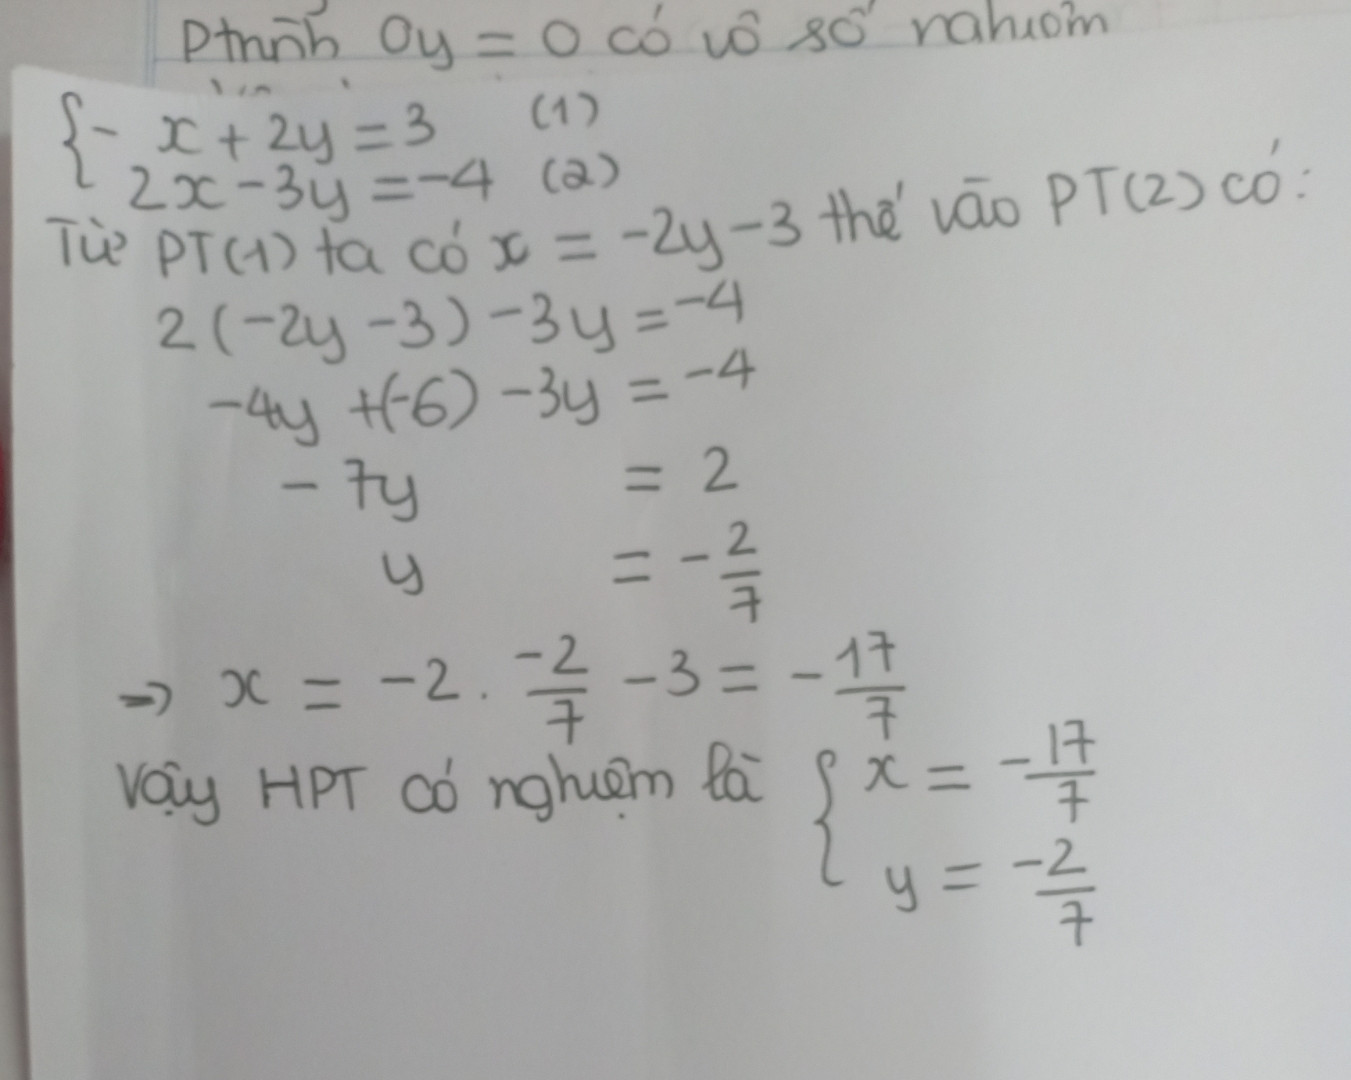 Ptrình 0y = 0 có vô số nghiệm
{ - x + 2y = 3 (1)
2x - 3y = -4 (2)
Từ PT(1) ta có x = -2y - 3 thế vào PT(2) có:
2(-2y - 3) - 3y = -4
-4y + (-6) - 3y = -4
- 7y = 2
y = - 2/7
=> x = -2 . -2/7 - 3 = - 17/7
Vậy HPT có nghiệm là { x = - 17/7
y = -2/7